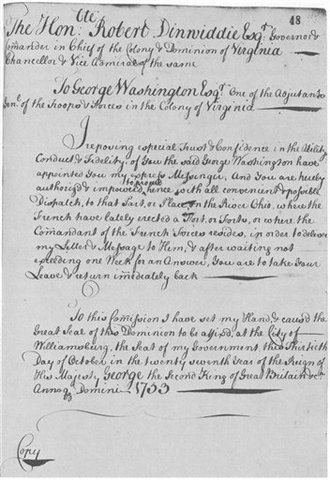 48
The Hon:ble Robert Dinwiddie Esqr. Governor &
Comander in Chief of the Colony & Dominion of Virginia
Chancellor & Vice Admiral of the same
To George Washington Esqr. One of the Adjutants
Genl. of the Troops & Forces in the Colony of Virginia
I reposing especial Trust & Confidence in the Ability
Conduct & Fidelity, of You the said George Washington have
appointed You my express Messenger, And You are hereby
authoriz'd & impowered
to proceed
hence with all convenient & possible
Dispatch, to that Part, or Place, on the River Ohio, where the
French have lately erected a Fort, or Forts, or where the
Comandant of the French Forces resides, in order to deliver
my Letter & Message to Him; & after waiting not
exceeding one Week for an Answer, You are to take Your
Leave & return imediately back
To this Comission I have set my Hand, & caus'd the
Great Seal of this Dominion to be affix'd, at the City of
Williamsburg, the Seat of my Government, this Thirtieth
Day of October in the twenty seventh Year of the Reign of
His Majesty George the Second King of Great Britain &c
Annoq Domini 1753
Copy